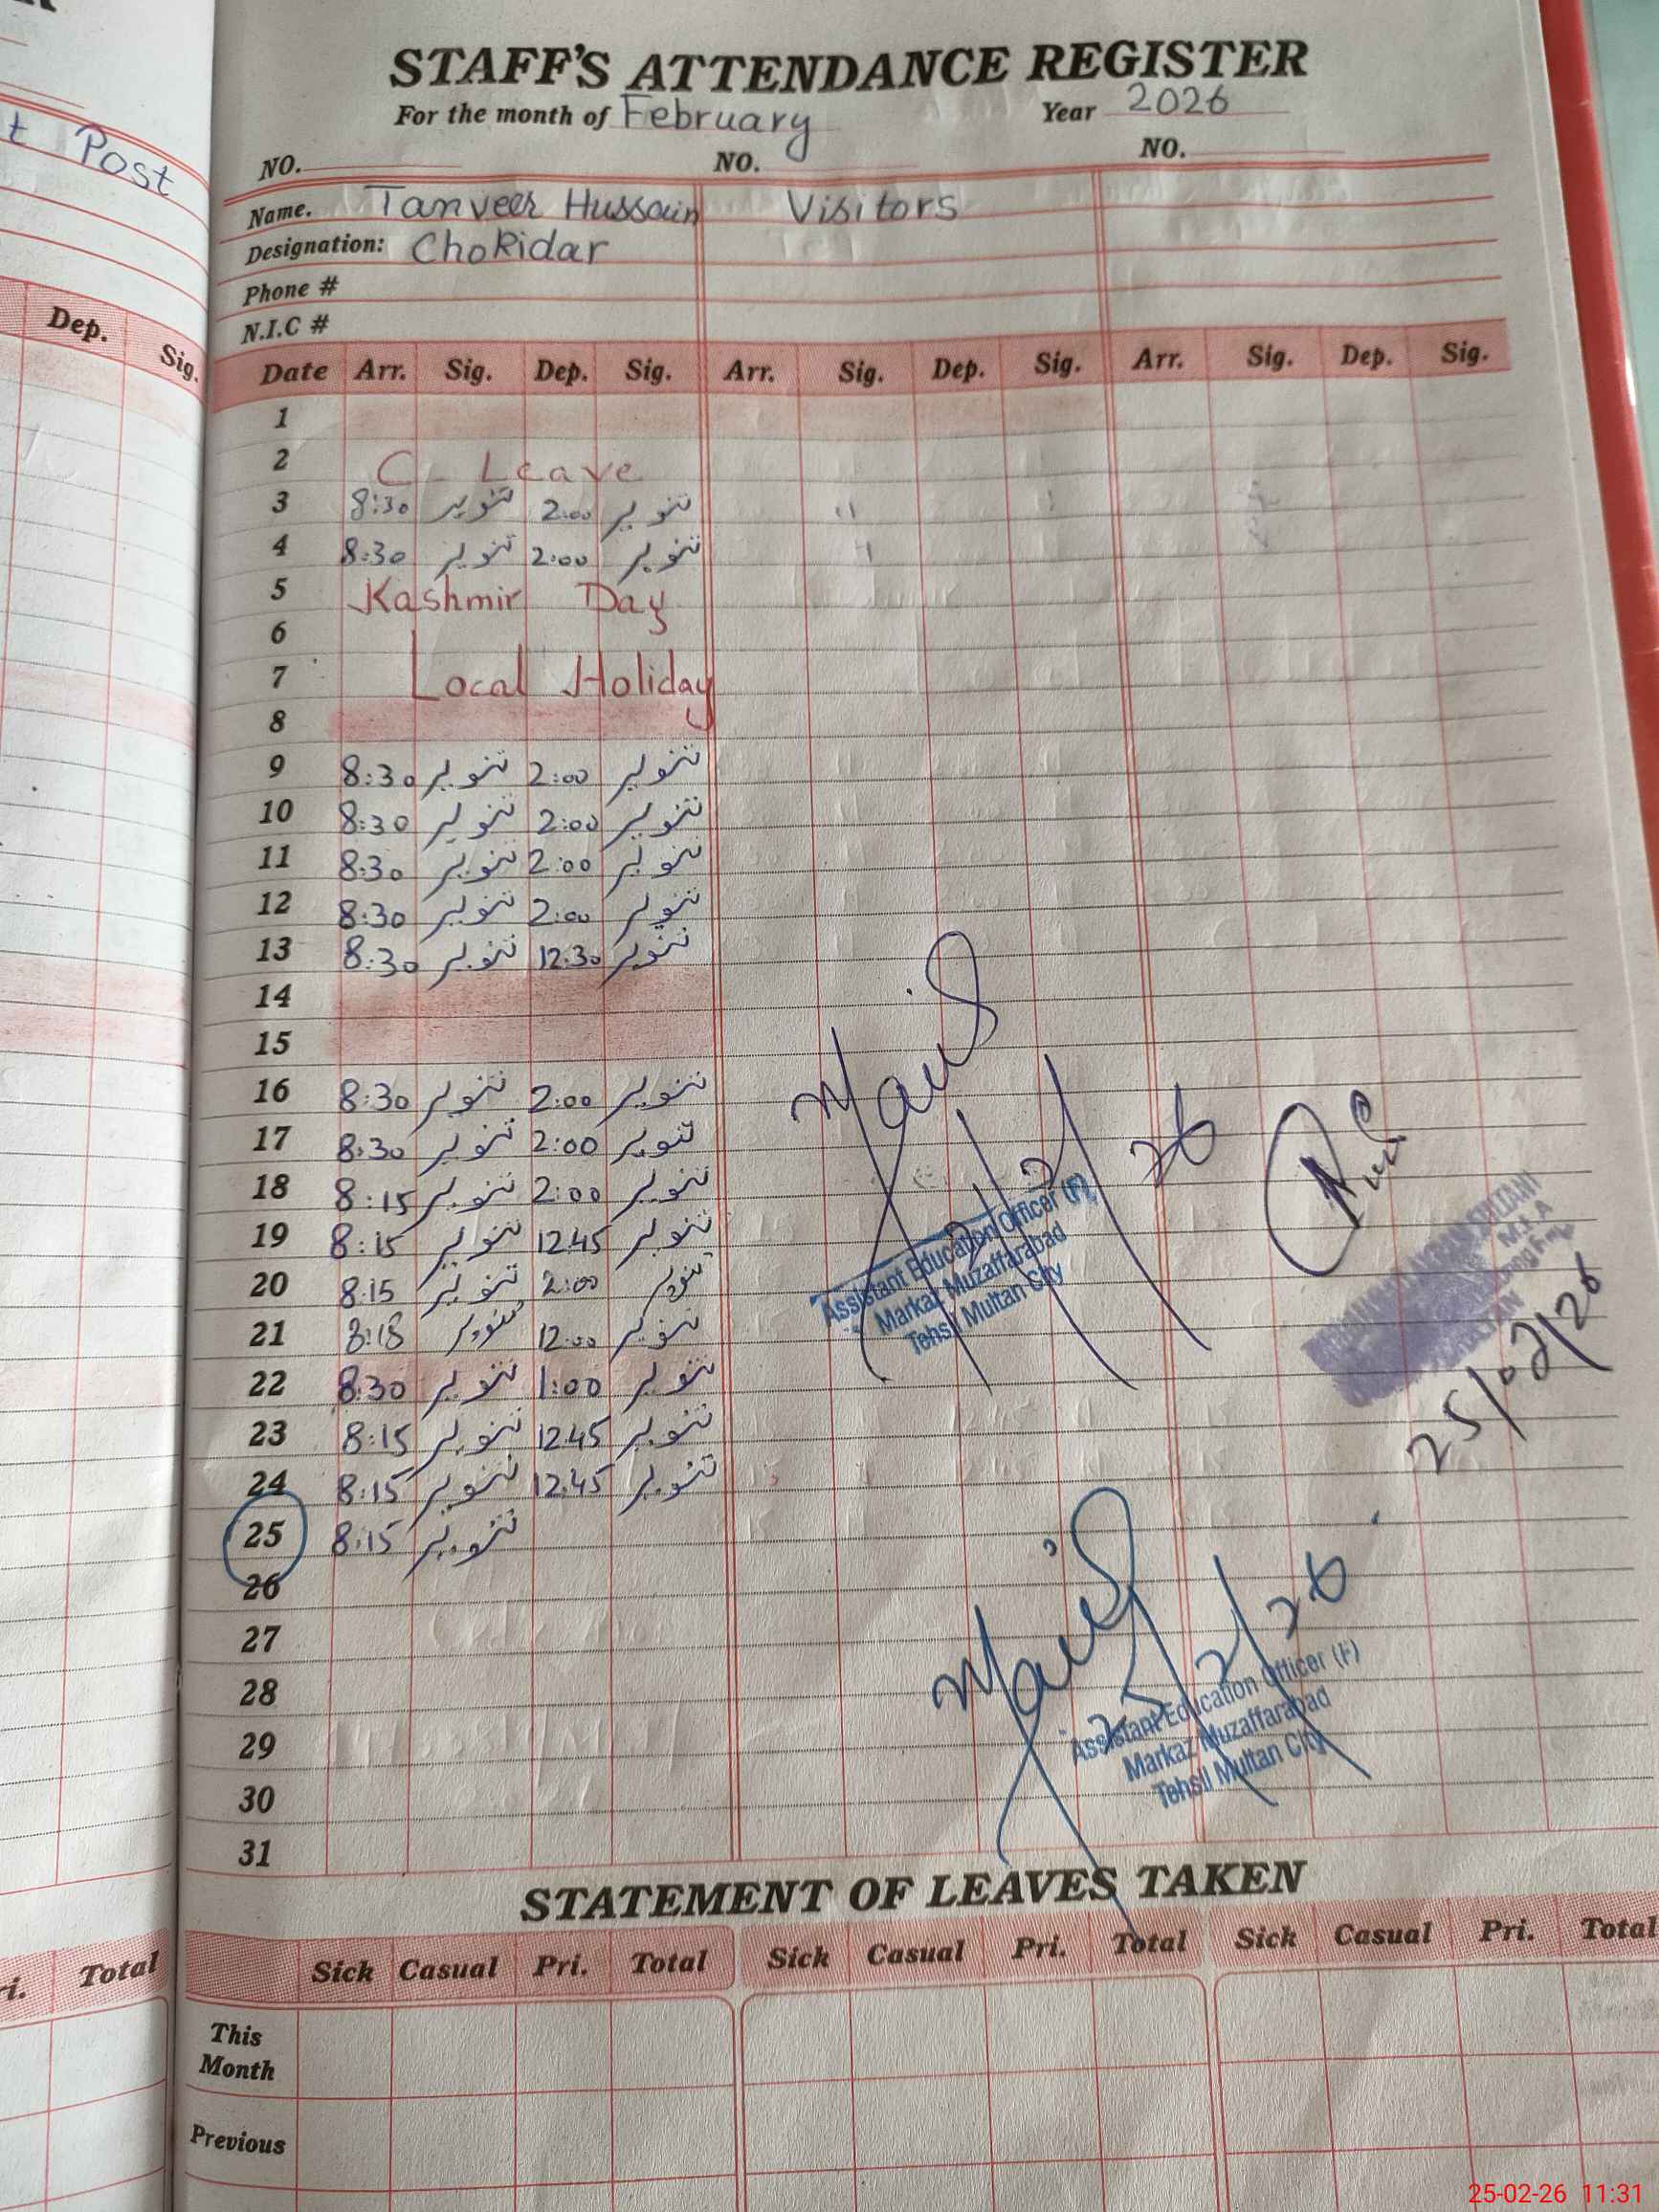 t Post
Dep. Sig.
STAFF'S ATTENDANCE REGISTER
For the month of February Year 2026
NO. NO. NO.
Name. Tanveer Hussain Visitors
Designation: Chokidar
Phone #
N.I.C #
Date Arr. Sig. Dep. Sig. Arr. Sig. Dep. Sig. Arr. Sig. Dep. Sig.
1
2 C. Leave
3 8:30 تنویر 2:00 تنویر
4 8:30 تنویر 2:00 تنویر
5 Kashmir Day
6
7 Local Holiday
8
9 8:30 تنویر 2:00 تنویر
10 8:30 تنویر 2:00 تنویر
11 8:30 تنویر 2:00 تنویر
12 8:30 تنویر 2:00 تنویر
13 8:30 تنویر 12:30 تنویر
14
15
16 8:30 تنویر 2:00 تنویر
17 8:30 تنویر 2:00 تنویر
18 8:15 تنویر 2:00 تنویر
19 8:15 تنویر 12:45 تنویر
20 8:15 تنویر 2:00 تنویر
21 8:18 تنویر 12:00 تنویر
22 8:30 تنویر 1:00 تنویر
23 8:15 تنویر 12:45 تنویر
24 8:15 تنویر 12:45 تنویر
25 8:15 تنویر
26
27
28
29
30
31
Assistant Education Officer (F)
Markaz Muzaffarabad
Tehsil Multan City
25/02/26
Assistant Education Officer (F)
Markaz Muzaffarabad
Tehsil Multan City
STATEMENT OF LEAVES TAKEN
ri. Total
Sick Casual Pri. Total Sick Casual Pri. Total Sick Casual Pri. Total
This Month
Previous
25-02-26 11:31